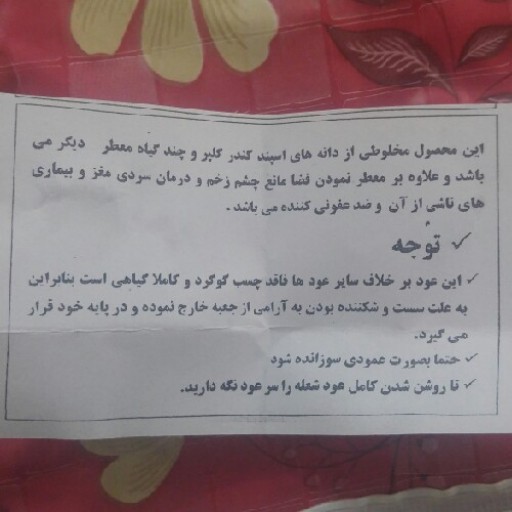 این محصول مخلوطی از دانه های اسپند کندر کلپر و چند گیاه معطر دیگر می
باشد و علاوه بر معطر نمودن فضا مانع چشم زخم و درمان سردی مغز و بیماری
های ناشی از آن و ضد عفونی کننده می باشد.
✓ توجه
✓ این عود بر خلاف سایر عود ها فاقد چسب گوگرد و کاملا گیاهی است بنابراین
به علت سست و شکننده بودن به آرامی از جعبه خارج نموده و در پایه خود قرار
می گیرد.
✓ حتما بصورت عمودی سوزانده شود
✓ تا روشن شدن کامل عود شعله را سر عود نگه دارید.